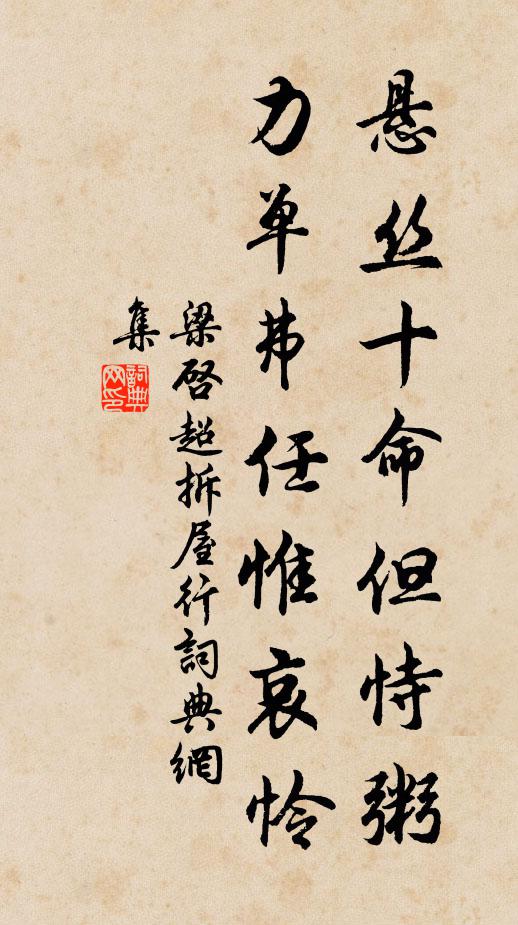 悬丝十命但恃粥
力单弗任惟哀怜
梁启超拆屋行詞典網
集
詞典
网印